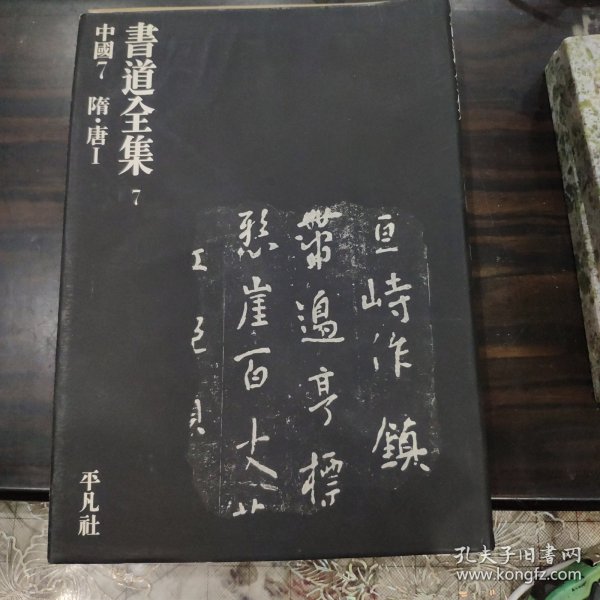 書道全集 7
中國7 隋・唐I
亘峙作鎮
帶邊亭標
懸崖百丈
平凡社
孔夫子旧書网
www.kongfz.com